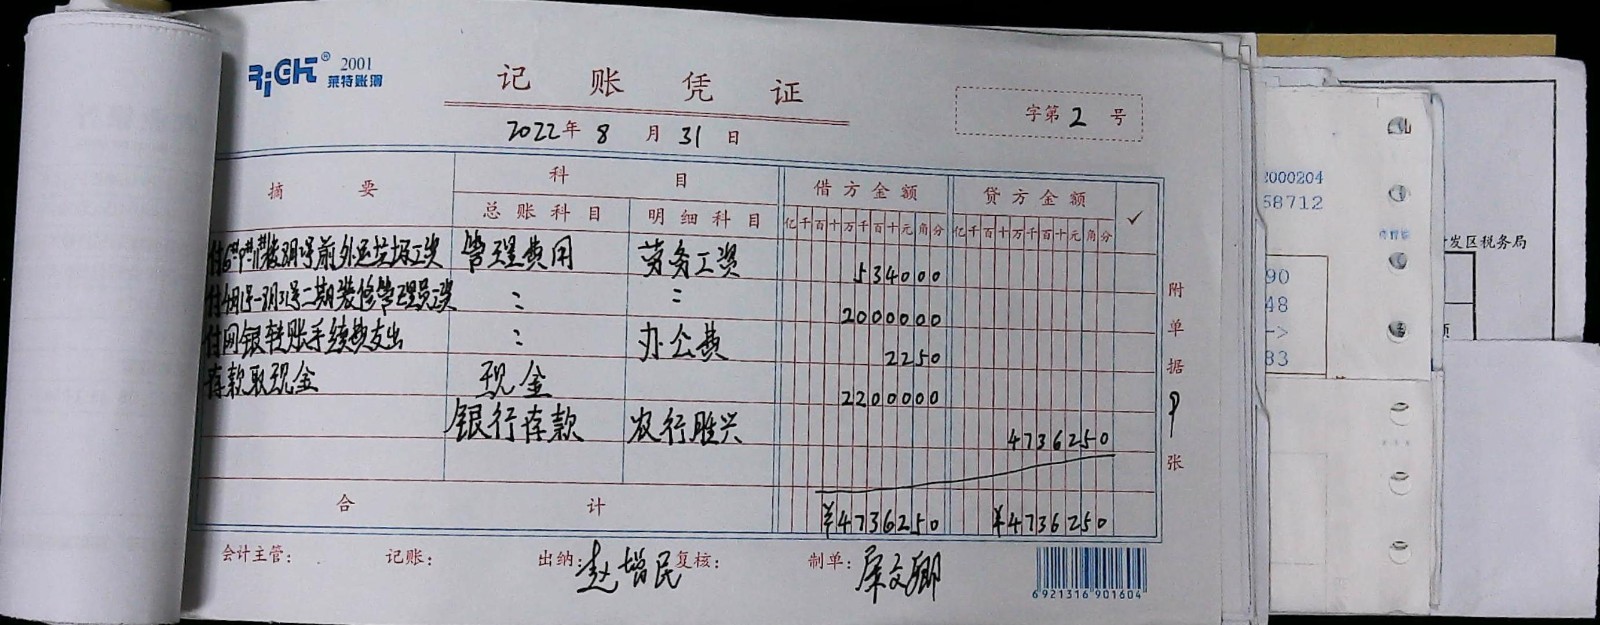 RiGHT® 2001
莱特账簿
记账凭证
字第2号
2022年8月31日
摘要 科目 借方金额 贷方金额 ✓
总账科目 明细科目 亿千百十万千百十元角分 亿千百十万千百十元角分
前外运垃圾工资 管理费用 劳务工资 534000
二期装修管理员 〃 〃 2000000
付网银转账手续费支出 〃 办公费 2250
存款取现金 现金 2200000
银行存款 农行胜兴 4736250
合计 ¥4736250 ¥4736250
附单据9张
会计主管: 记账: 出纳:赵增民 复核: 制单:
6921316901604
2000204
58712
90
48
->
83
发区税务局